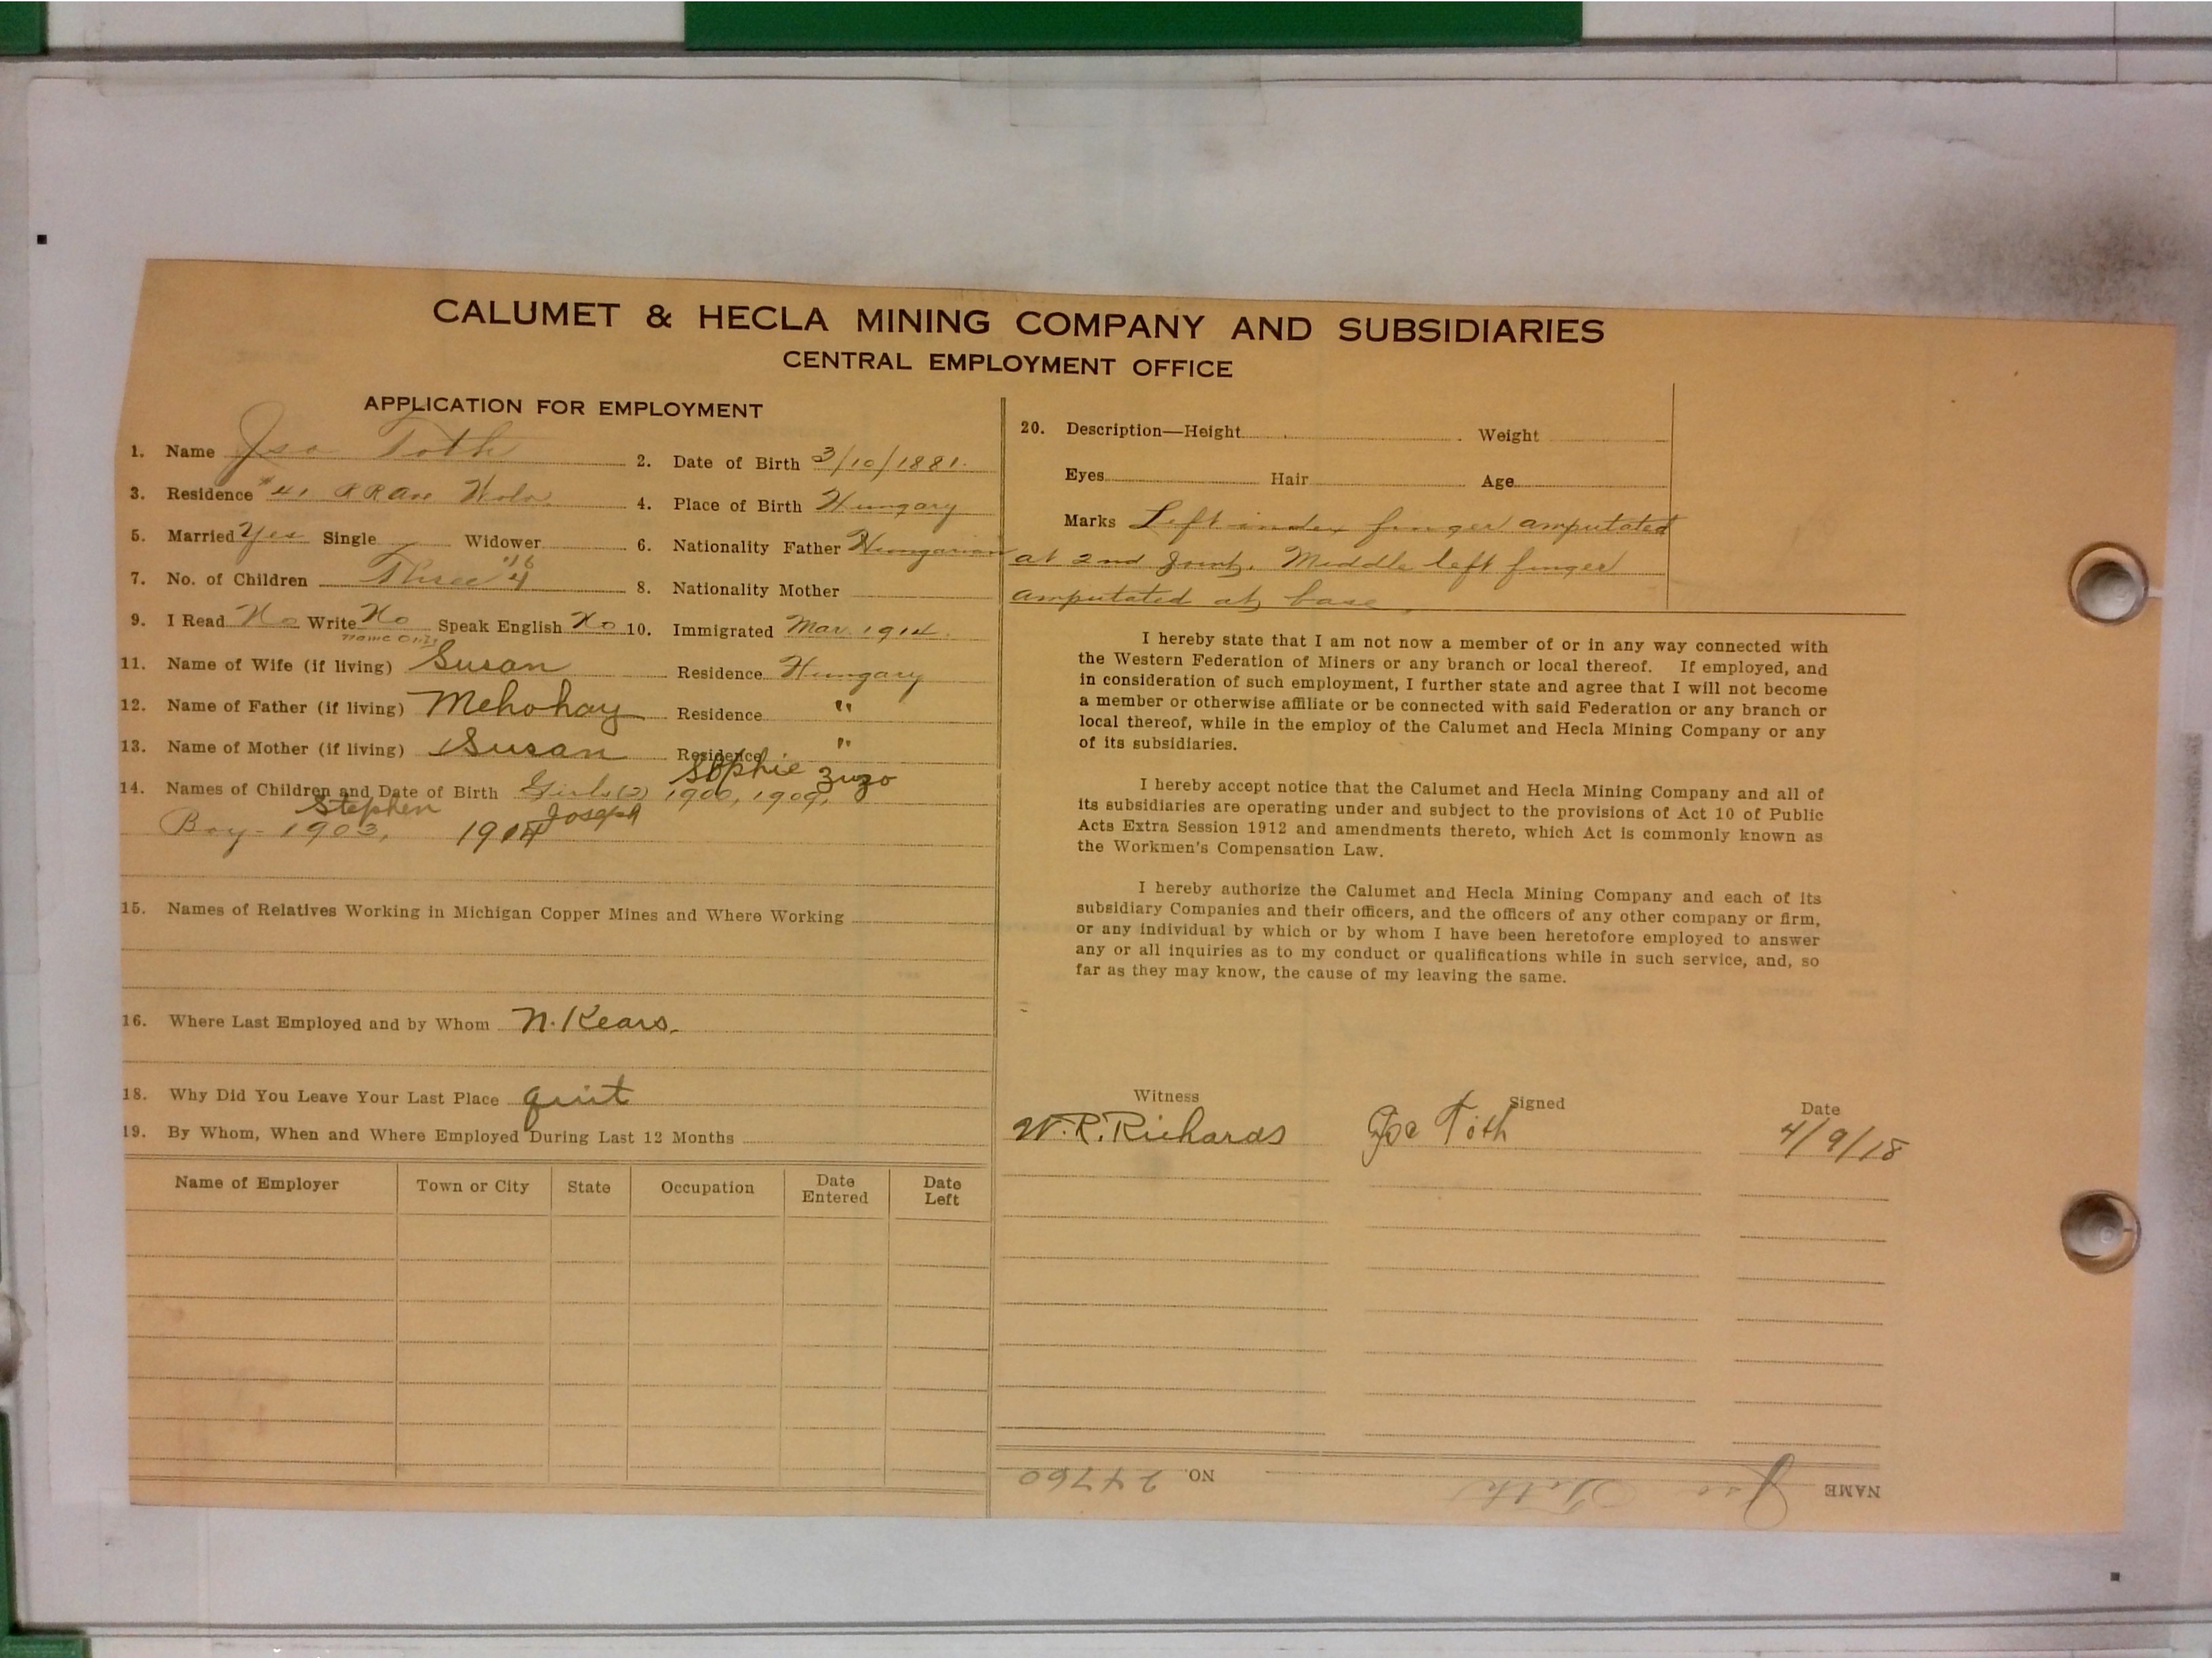 CALUMET & HECLA MINING COMPANY AND SUBSIDIARIES
CENTRAL EMPLOYMENT OFFICE
APPLICATION FOR EMPLOYMENT
1. Name Joe Toth 2. Date of Birth 3/10/1881.
3. Residence #41 RR Ave 4. Place of Birth Hungary
5. Married Yes Single Widower 6. Nationality Father Hungarian
'16
7. No. of Children Three 4 8. Nationality Mother
9. I Read No Write No Speak English No 10. Immigrated Mar. 1914.
name only
11. Name of Wife (if living) Susan Residence Hungary
12. Name of Father (if living) Mehohay Residence "
13. Name of Mother (if living) Susan Residence "
Sophie Zuzo
14. Names of Children and Date of Birth Girls (2) 1900, 1909,
Stephen Joseph
Boy - 1903, 1914
15. Names of Relatives Working in Michigan Copper Mines and Where Working
16. Where Last Employed and by Whom N. Kears.
18. Why Did You Leave Your Last Place quit
19. By Whom, When and Where Employed During Last 12 Months
Name of Employer Town or City State Occupation Date Entered Date Left
20. Description—Height Weight
Eyes Hair Age
Marks Left index finger amputated
at 2nd joint. Middle left finger
amputated at base
I hereby state that I am not now a member of or in any way connected with
the Western Federation of Miners or any branch or local thereof. If employed, and
in consideration of such employment, I further state and agree that I will not become
a member or otherwise affiliate or be connected with said Federation or any branch or
local thereof, while in the employ of the Calumet and Hecla Mining Company or any
of its subsidiaries.
I hereby accept notice that the Calumet and Hecla Mining Company and all of
its subsidiaries are operating under and subject to the provisions of Act 10 of Public
Acts Extra Session 1912 and amendments thereto, which Act is commonly known as
the Workmen's Compensation Law.
I hereby authorize the Calumet and Hecla Mining Company and each of its
subsidiary Companies and their officers, and the officers of any other company or firm,
or any individual by which or by whom I have been heretofore employed to answer
any or all inquiries as to my conduct or qualifications while in such service, and, so
far as they may know, the cause of my leaving the same.
Witness Signed Date
W. R. Richards Joe Toth 4/9/18
NAME Joe Toth NO. 24760